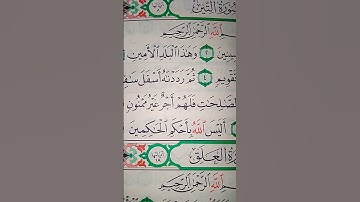 سُورَةُ التِّينِ
مِ ٱللَّهِ ٱلرَّحْمَٰنِ ٱلرَّحِيمِ
وَهَٰذَا ٱلْبَلَدِ ٱلْأَمِينِ
تَقْوِيمٍ ٤ ثُمَّ رَدَدْنَٰهُ أَسْفَلَ سَٰفِ
لصَّٰلِحَٰتِ فَلَهُمْ أَجْرٌ غَيْرُ مَمْنُونٍ
أَلَيْسَ ٱللَّهُ بِأَحْكَمِ ٱلْحَٰكِمِينَ
رَةُ ٱلْعَلَقِ
مِ ٱللَّهِ ٱلرَّحْمَٰنِ ٱلرَّحِيمِ